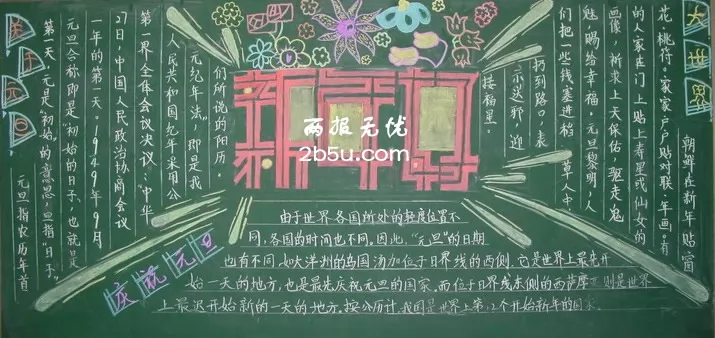 关于元旦
元旦指农历年首
第一天。"元"是"初始"的意思，旦指"日子"
元旦合称即是"初始的日子"，也就是
一年的第一天。1949年9月
27日，中国人民政治协商会议
第一界全体会议决议："中华
人民共和国纪年采用公
元纪年法"，即是我
们所说的阳历。
新日
两报无忧
2b5u.com
大世界
朝鲜在新年贴窗
花、桃符。家家户户贴对联、年画。有
的人家在门上贴上寿星或仙女的
画像，祈求上天保佑，驱走鬼
魅，赐给幸福。元旦黎明，人
们把一些钱塞进稻草人中，
扔到路口，表
示送邪，迎
接福星。
由于世界各国所处的经度位置不
同，各国的时间也不同。因此，"元旦"的日期
也有不同。如大洋州的岛国汤加位于日界线的西侧，它是世界上最先开
始一天的地方，也是最先庆祝元旦的国家。而位于日界线东侧的西萨摩亚则是世界
上最迟开始新的一天的地方。按公历计，我国是世界上第12个开始新年的国家。
庆祝元旦